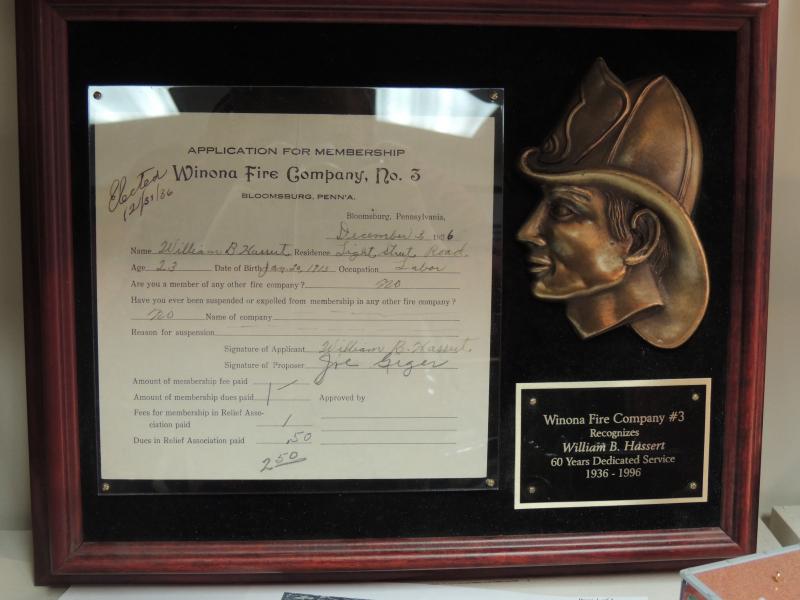 APPLICATION FOR MEMBERSHIP
Winona Fire Company, No. 3
BLOOMSBURG, PENN'A.
Elected
12/31/36
Bloomsburg, Pennsylvania,
December 3, 1936
Name William B Hassert Residence Light Street Road.
Age 23 Date of Birth Jan 20, 1913 Occupation Labor
Are you a member of any other fire company? NO
Have you ever been suspended or expelled from membership in any other fire company?
NO Name of company
Reason for suspension
Signature of Applicant William B. Hassert.
Signature of Proposer Joe Geger
Amount of membership fee paid 1
Amount of membership dues paid Approved by
Fees for membership in Relief Asso-
ciation paid 1
Dues in Relief Association paid .50
2.50
Winona Fire Company #3
Recognizes
William B. Hassert
60 Years Dedicated Service
1936 - 1996